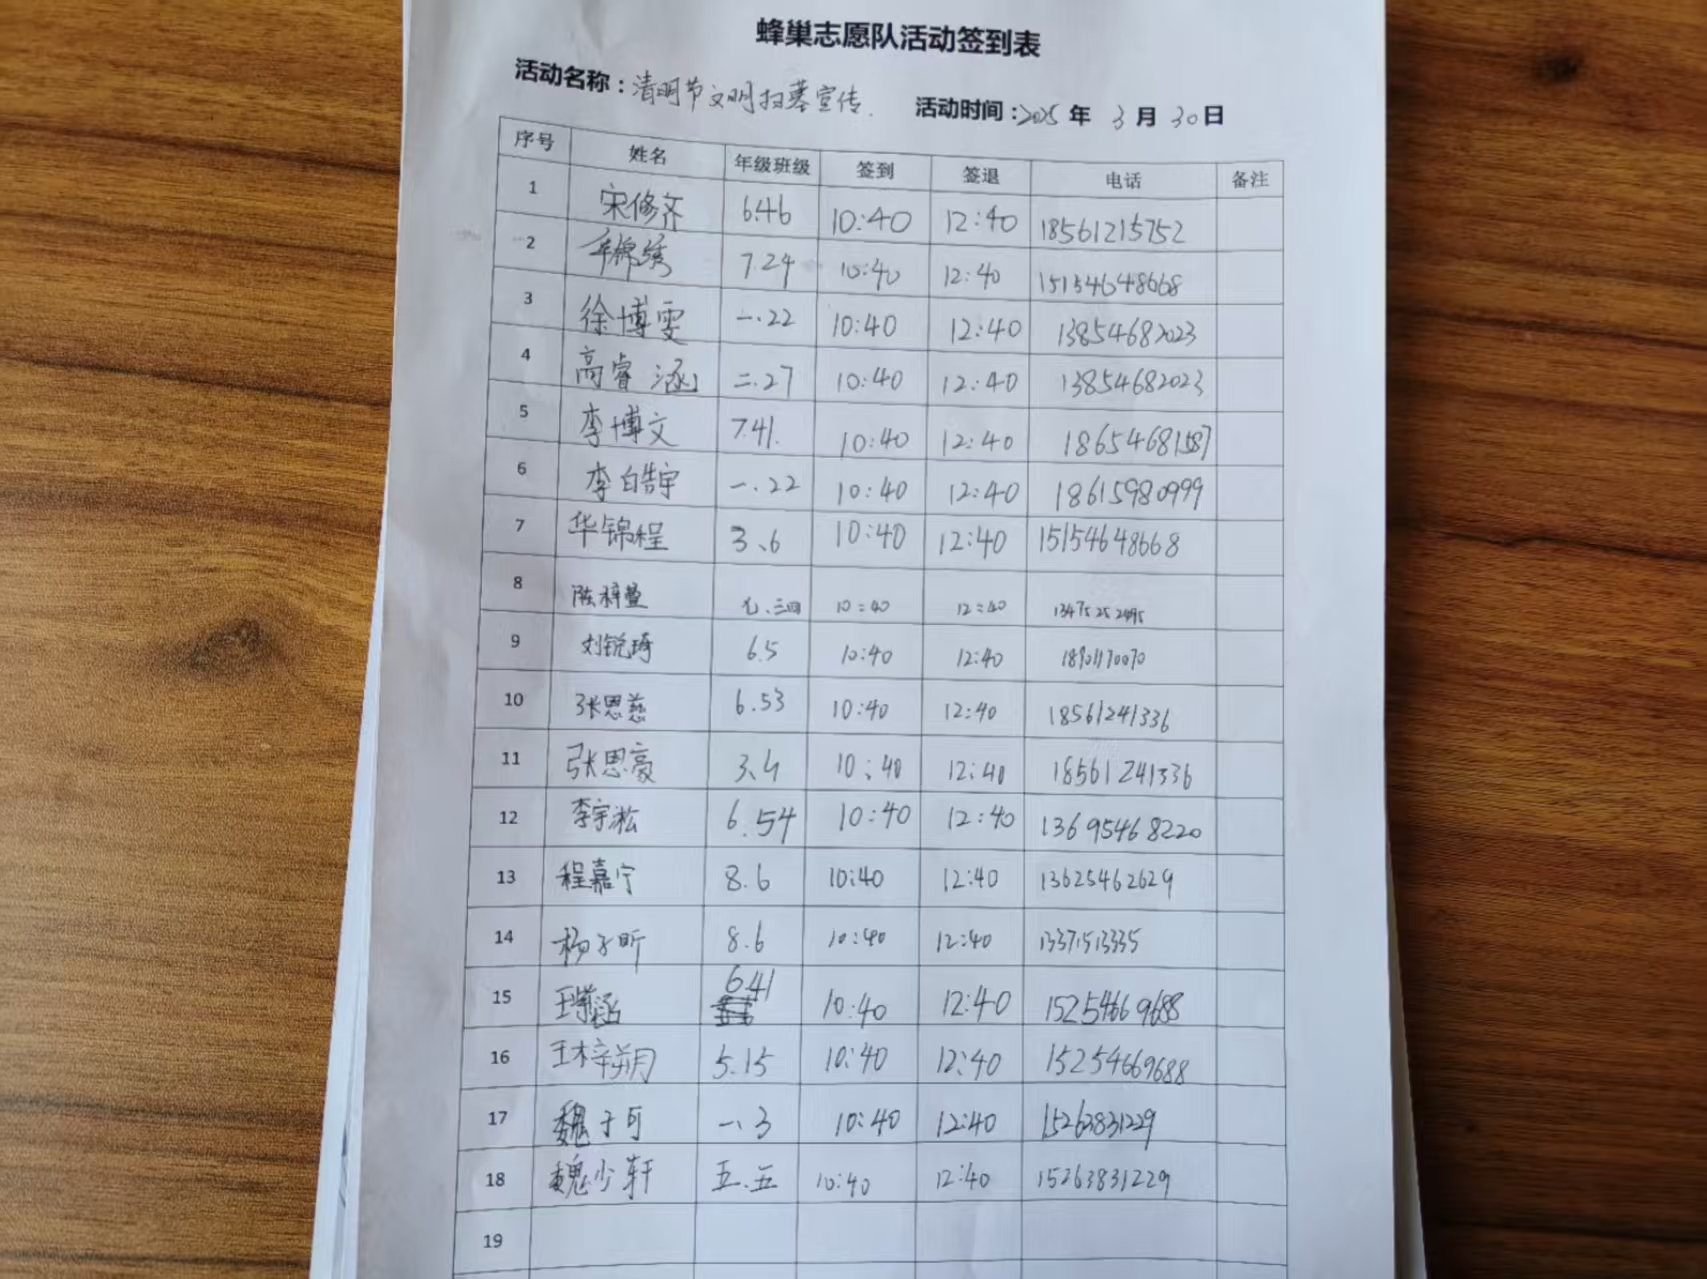 蜂巢志愿队活动签到表
活动名称：清明节文明扫墓宣传. 活动时间：2025 年 3 月 30 日
序号 姓名 年级班级 签到 签退 电话 备注
1 宋修齐 6.46 10:40 12:40 18561215752
2 锦绣 7.24 10:40 12:40 15154648668
3 徐博雯 一.22 10:40 12:40 13854682023
4 高睿涵 二.27 10:40 12:40 13854682023
5 李博文 7.41. 10:40 12:40 18654681587
6 李皓宇 一.22 10:40 12:40 18615980999
7 华锦程 3、6 10:40 12:40 15154648668
8 陈梓萱 七、三四 10:40 12:40
9 刘锐琦 6.5 10:40 12:40 18901170070
10 张恩慈 6.53 10:40 12:40 18561241336
11 张恩豪 3.4 10:40 12:40 18561241336
12 李宇淞 6.54 10:40 12:40 13695468220
13 程嘉宁 8.6 10:40 12:40 13625462629
14 杨子昕 8.6 10:40 12:40 13371513335
15 王涵 6.41 10:40 12:40 15254669688
16 王梓玥 5.15 10:40 12:40 15254669688
17 魏子可 一、3 10:40 12:40 15263831229
18 魏少轩 五.五 10:40 12:40 15263831229
19